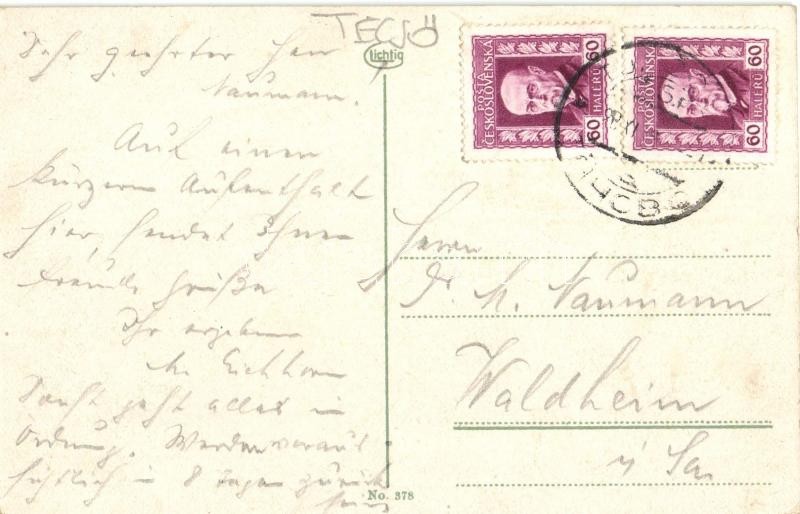 TECSÖ
lichtig
Sehr geehrter Herr
Naumann.
Auf einen
kürzern Aufenthalt
hier, sendet Ihnen
freundl. Grüße
Ihr ergeben
M. Eichhorn
Sonst geht alles in
Ordnung. Werden voraus-
sichtlich in 8 Tagen zurück
sein
POSTA
ČESKOSLOVENSKÁ
60 HALERŮ 60
POSTA
ČESKOSLOVENSKÁ
60 HALERŮ 60
Herrn
Dr. M. Naumann
Waldheim
i/ Sa
No. 378